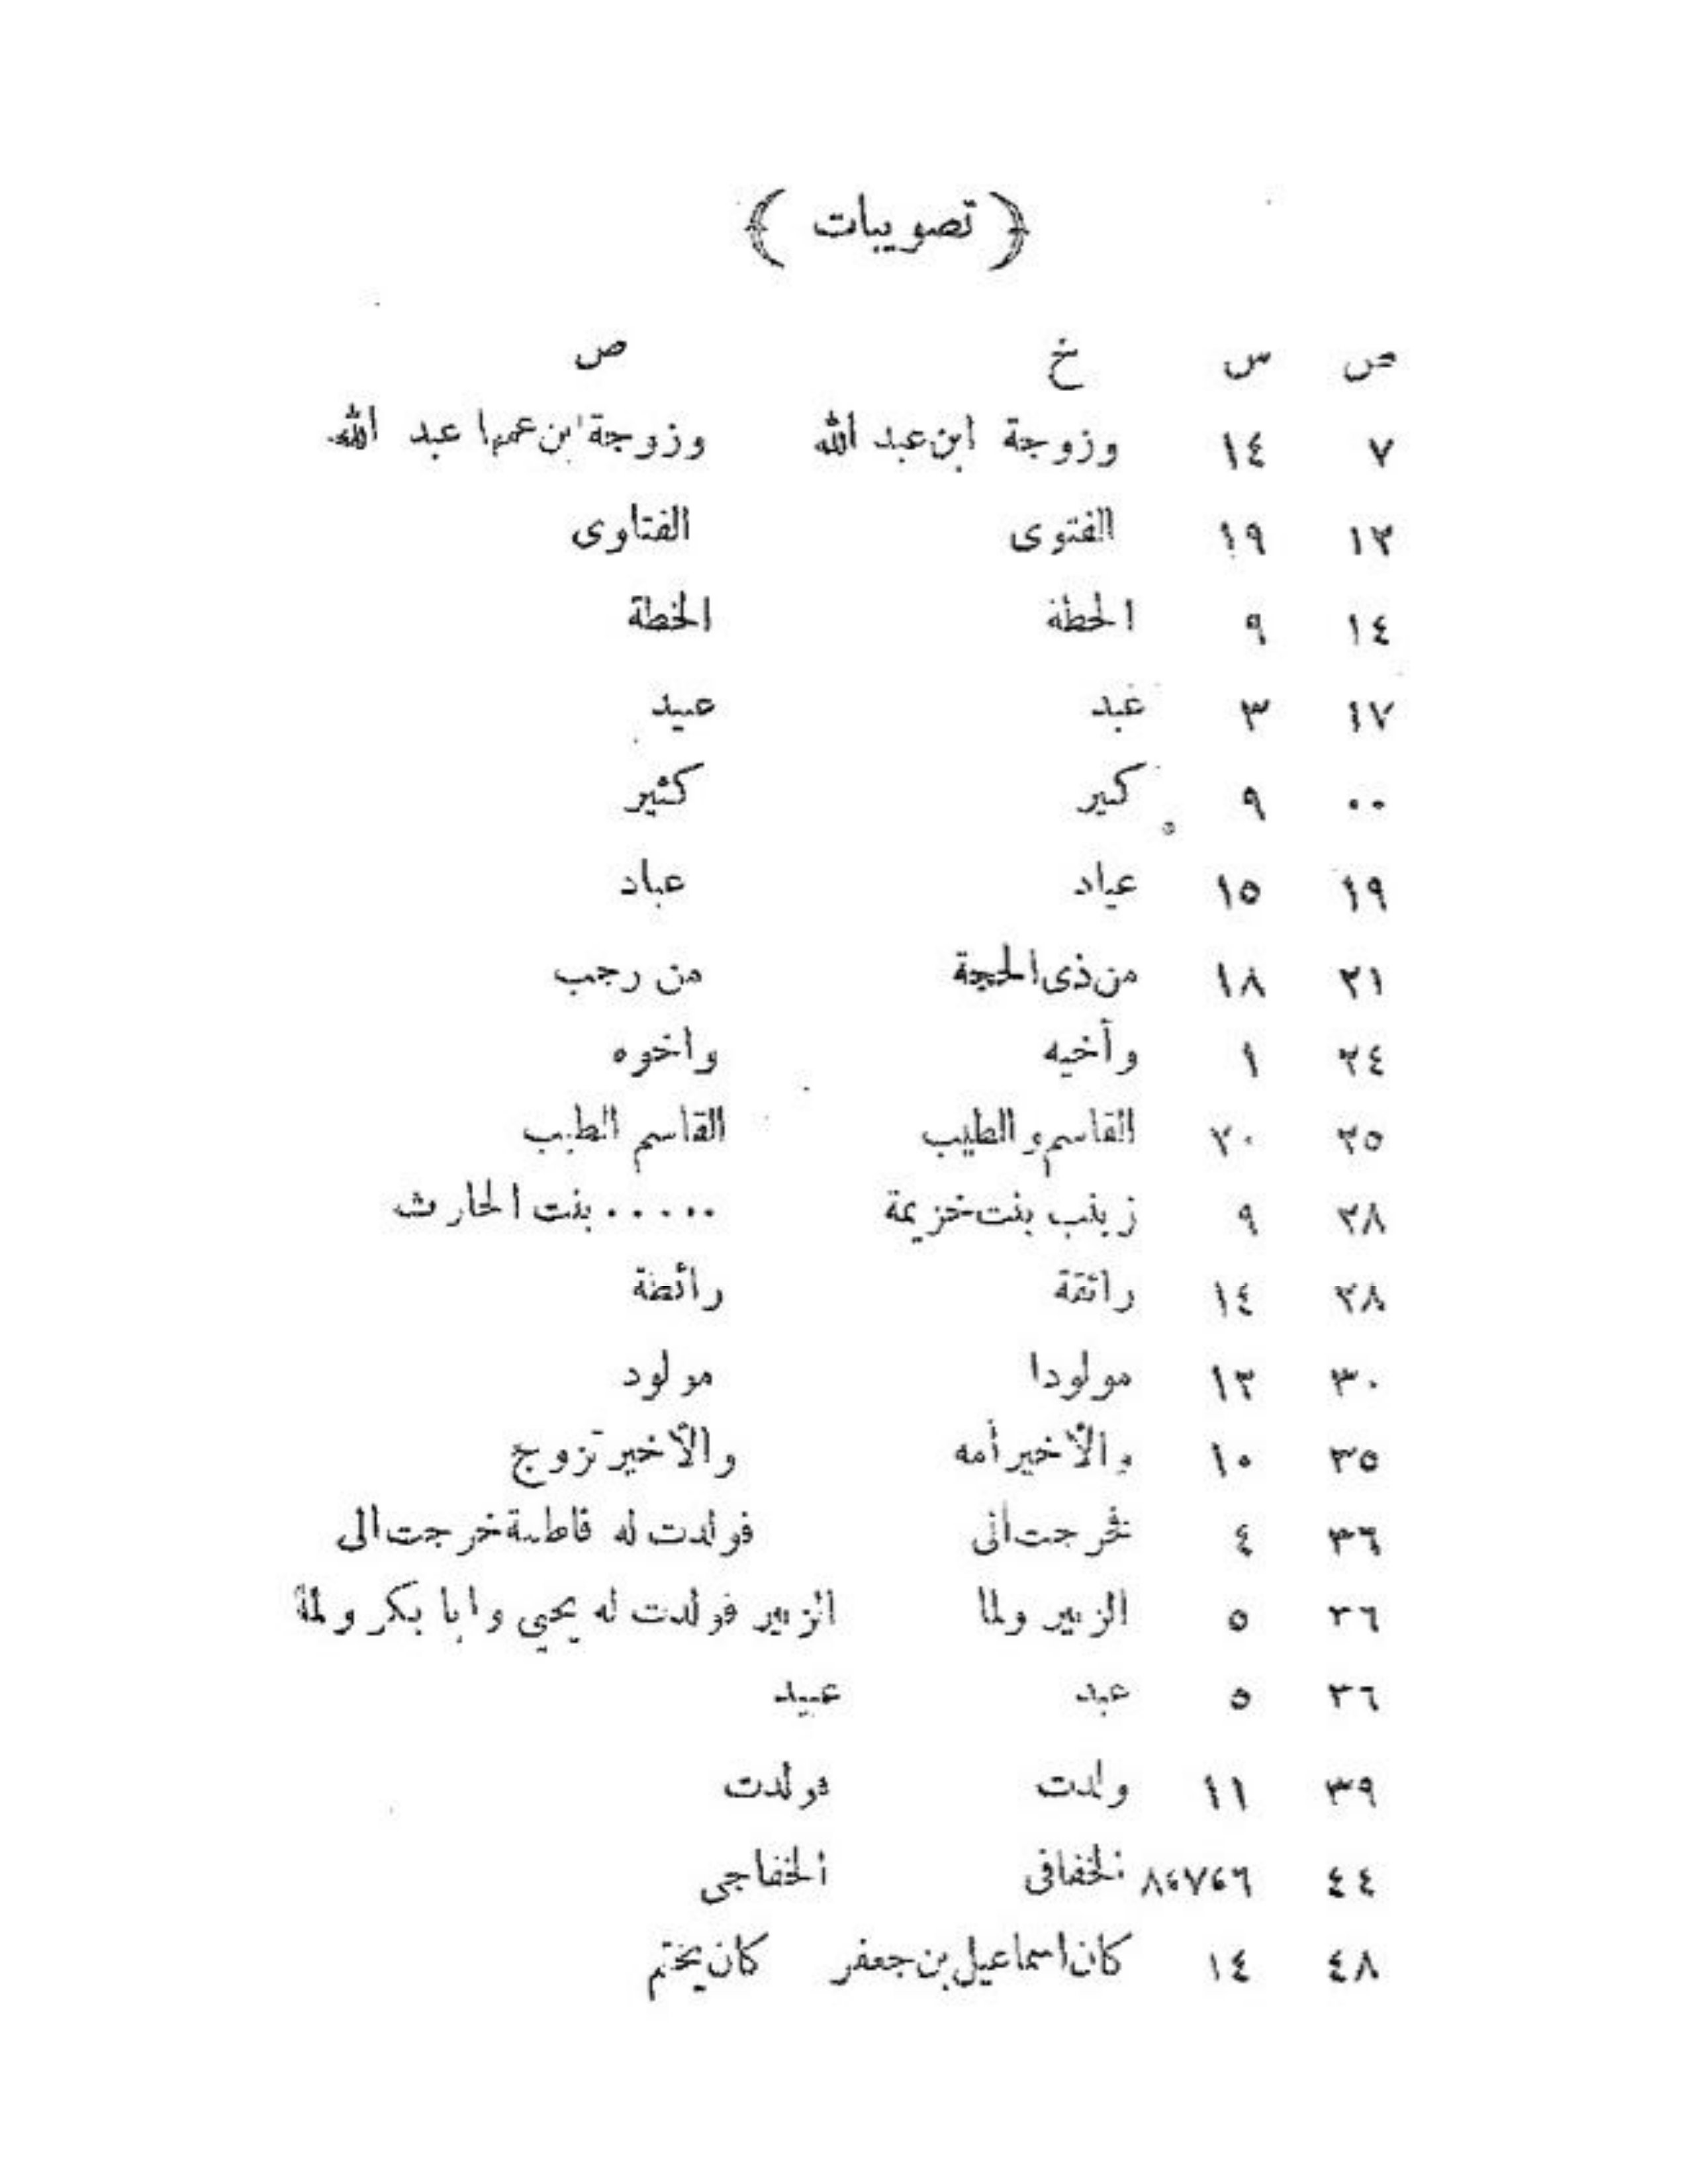 ﴿ تصويبات ﴾
ص س خ ص
٧ ١٤ وزوجة ابن عبد الله وزوجة ابن عمها عبد الله
١٣ ١٩ الفتوى الفتاوى
١٤ ٩ الحطة الخطة
١٧ ٣ عبد عبيد
٠٠ ٩ كبر كثير
١٩ ١٥ عياد عباد
٢١ ١٨ من ذى الحجة من رجب
٢٤ ١ وأخيه واخوه
٢٥ ٢٠ القاسم و الطيب القاسم الطيب
٢٨ ٩ زينب بنت خزيمة ..... بنت الحارث
٢٨ ١٤ رائقة رائطة
٣٠ ١٣ مولودا مولود
٣٥ ١٠ والأخير أمه والأخير تزوج
٣٦ ٤ فخرجت الى فولدت له فاطمة خرجت الى
٣٦ ٥ الزبير ولما الزبير فولدت له يحيى وابا بكر ولما
٣٦ ٥ عبد عبيد
٣٩ ١١ ولدت فولدت
٤٤ ٦،٧،٨ الخفافى الخفاجى
٤٨ ١٤ كان اسماعيل بن جعفر كان يختم